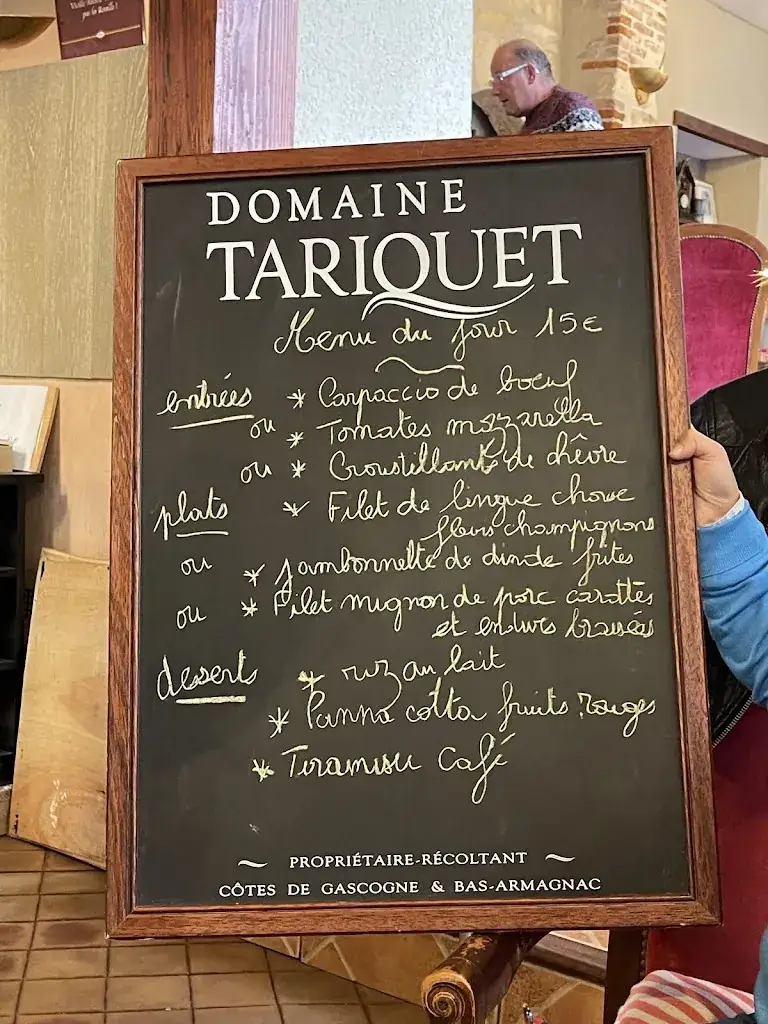 par les Bouilles !
DOMAINE
TARIQUET
Menu du jour 15€
entrées * Carpaccio de boeuf
ou * Tomates mozzarella
ou * Croustillant de chêvre
plats * Filet de lingue choux
fleurs champignons
ou * jambonnette de dinde frites
ou * Filet mignon de porc carottes
et endives braisées
desserts * riz au lait
* Panna cotta fruits rouges
* Tiramisu Café
~ PROPRIÉTAIRE-RÉCOLTANT ~
CÔTES DE GASCOGNE & BAS-ARMAGNAC